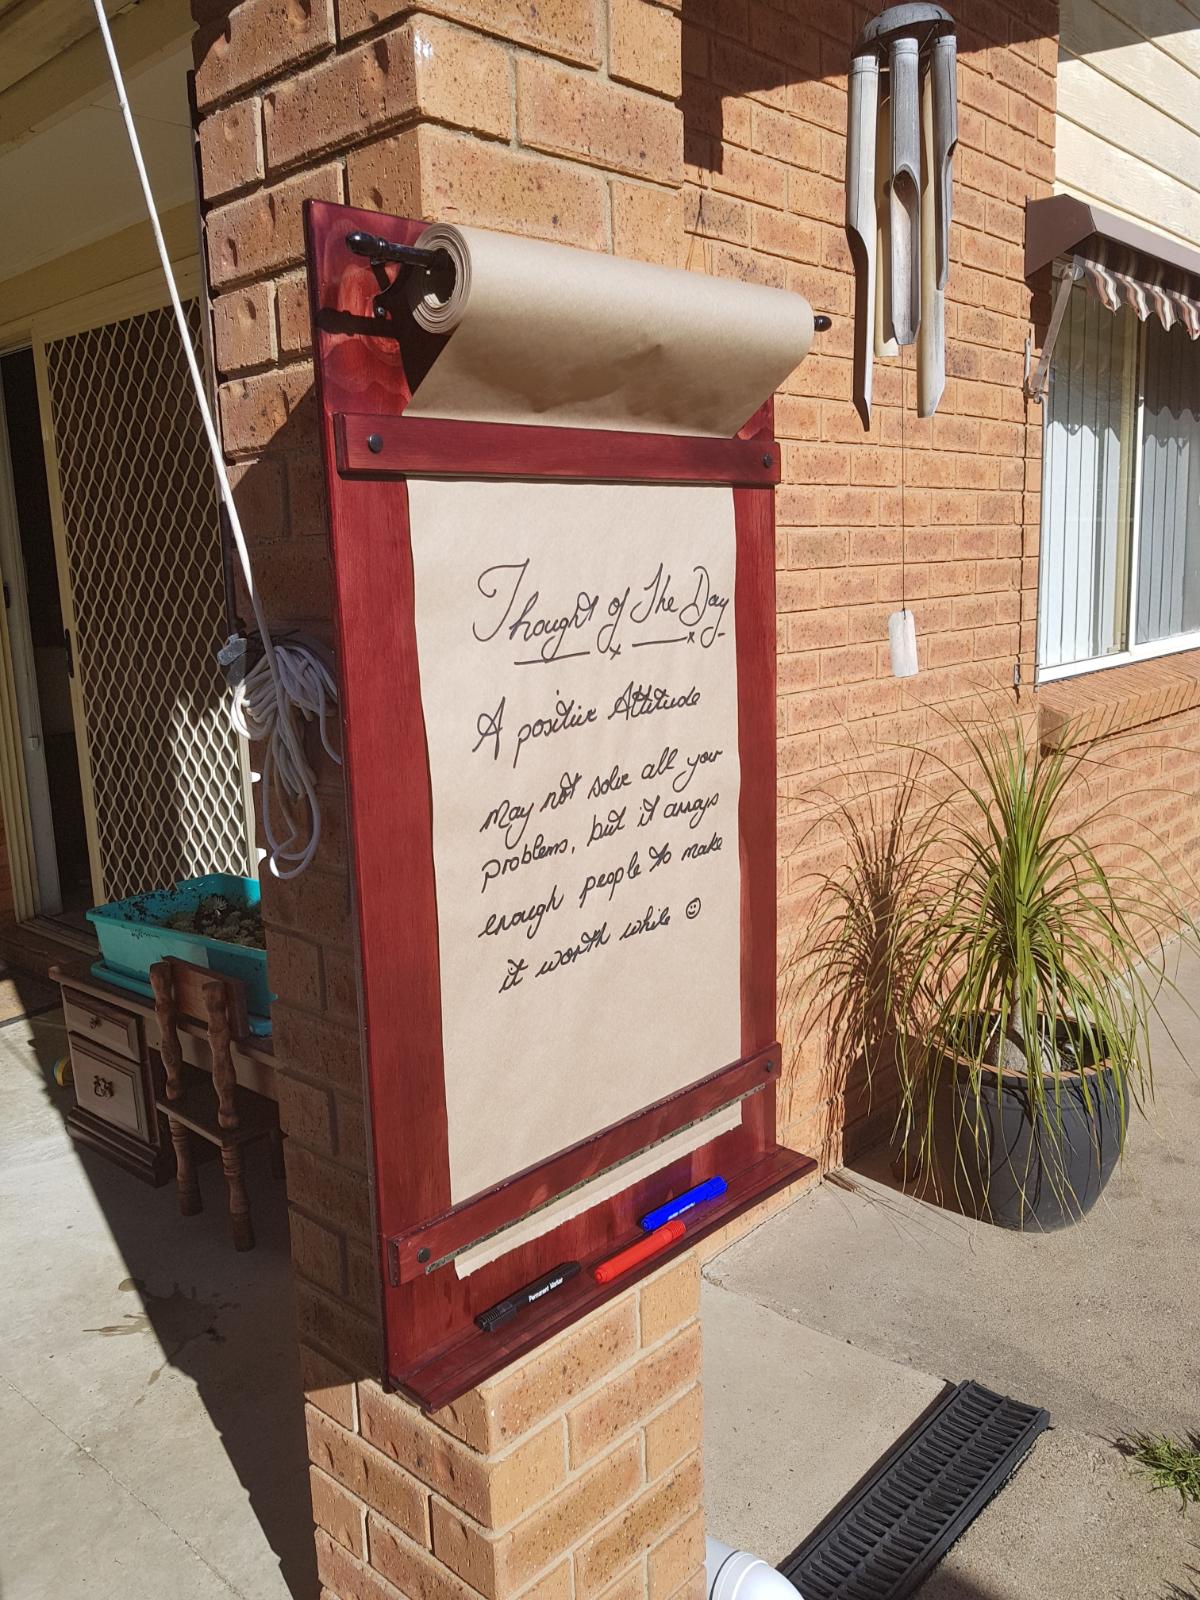 Thought of The Day
A positive Attitude
may not solve all your
problems, but it annoys
enough people to make
it worth while ☺
Permanent Marker